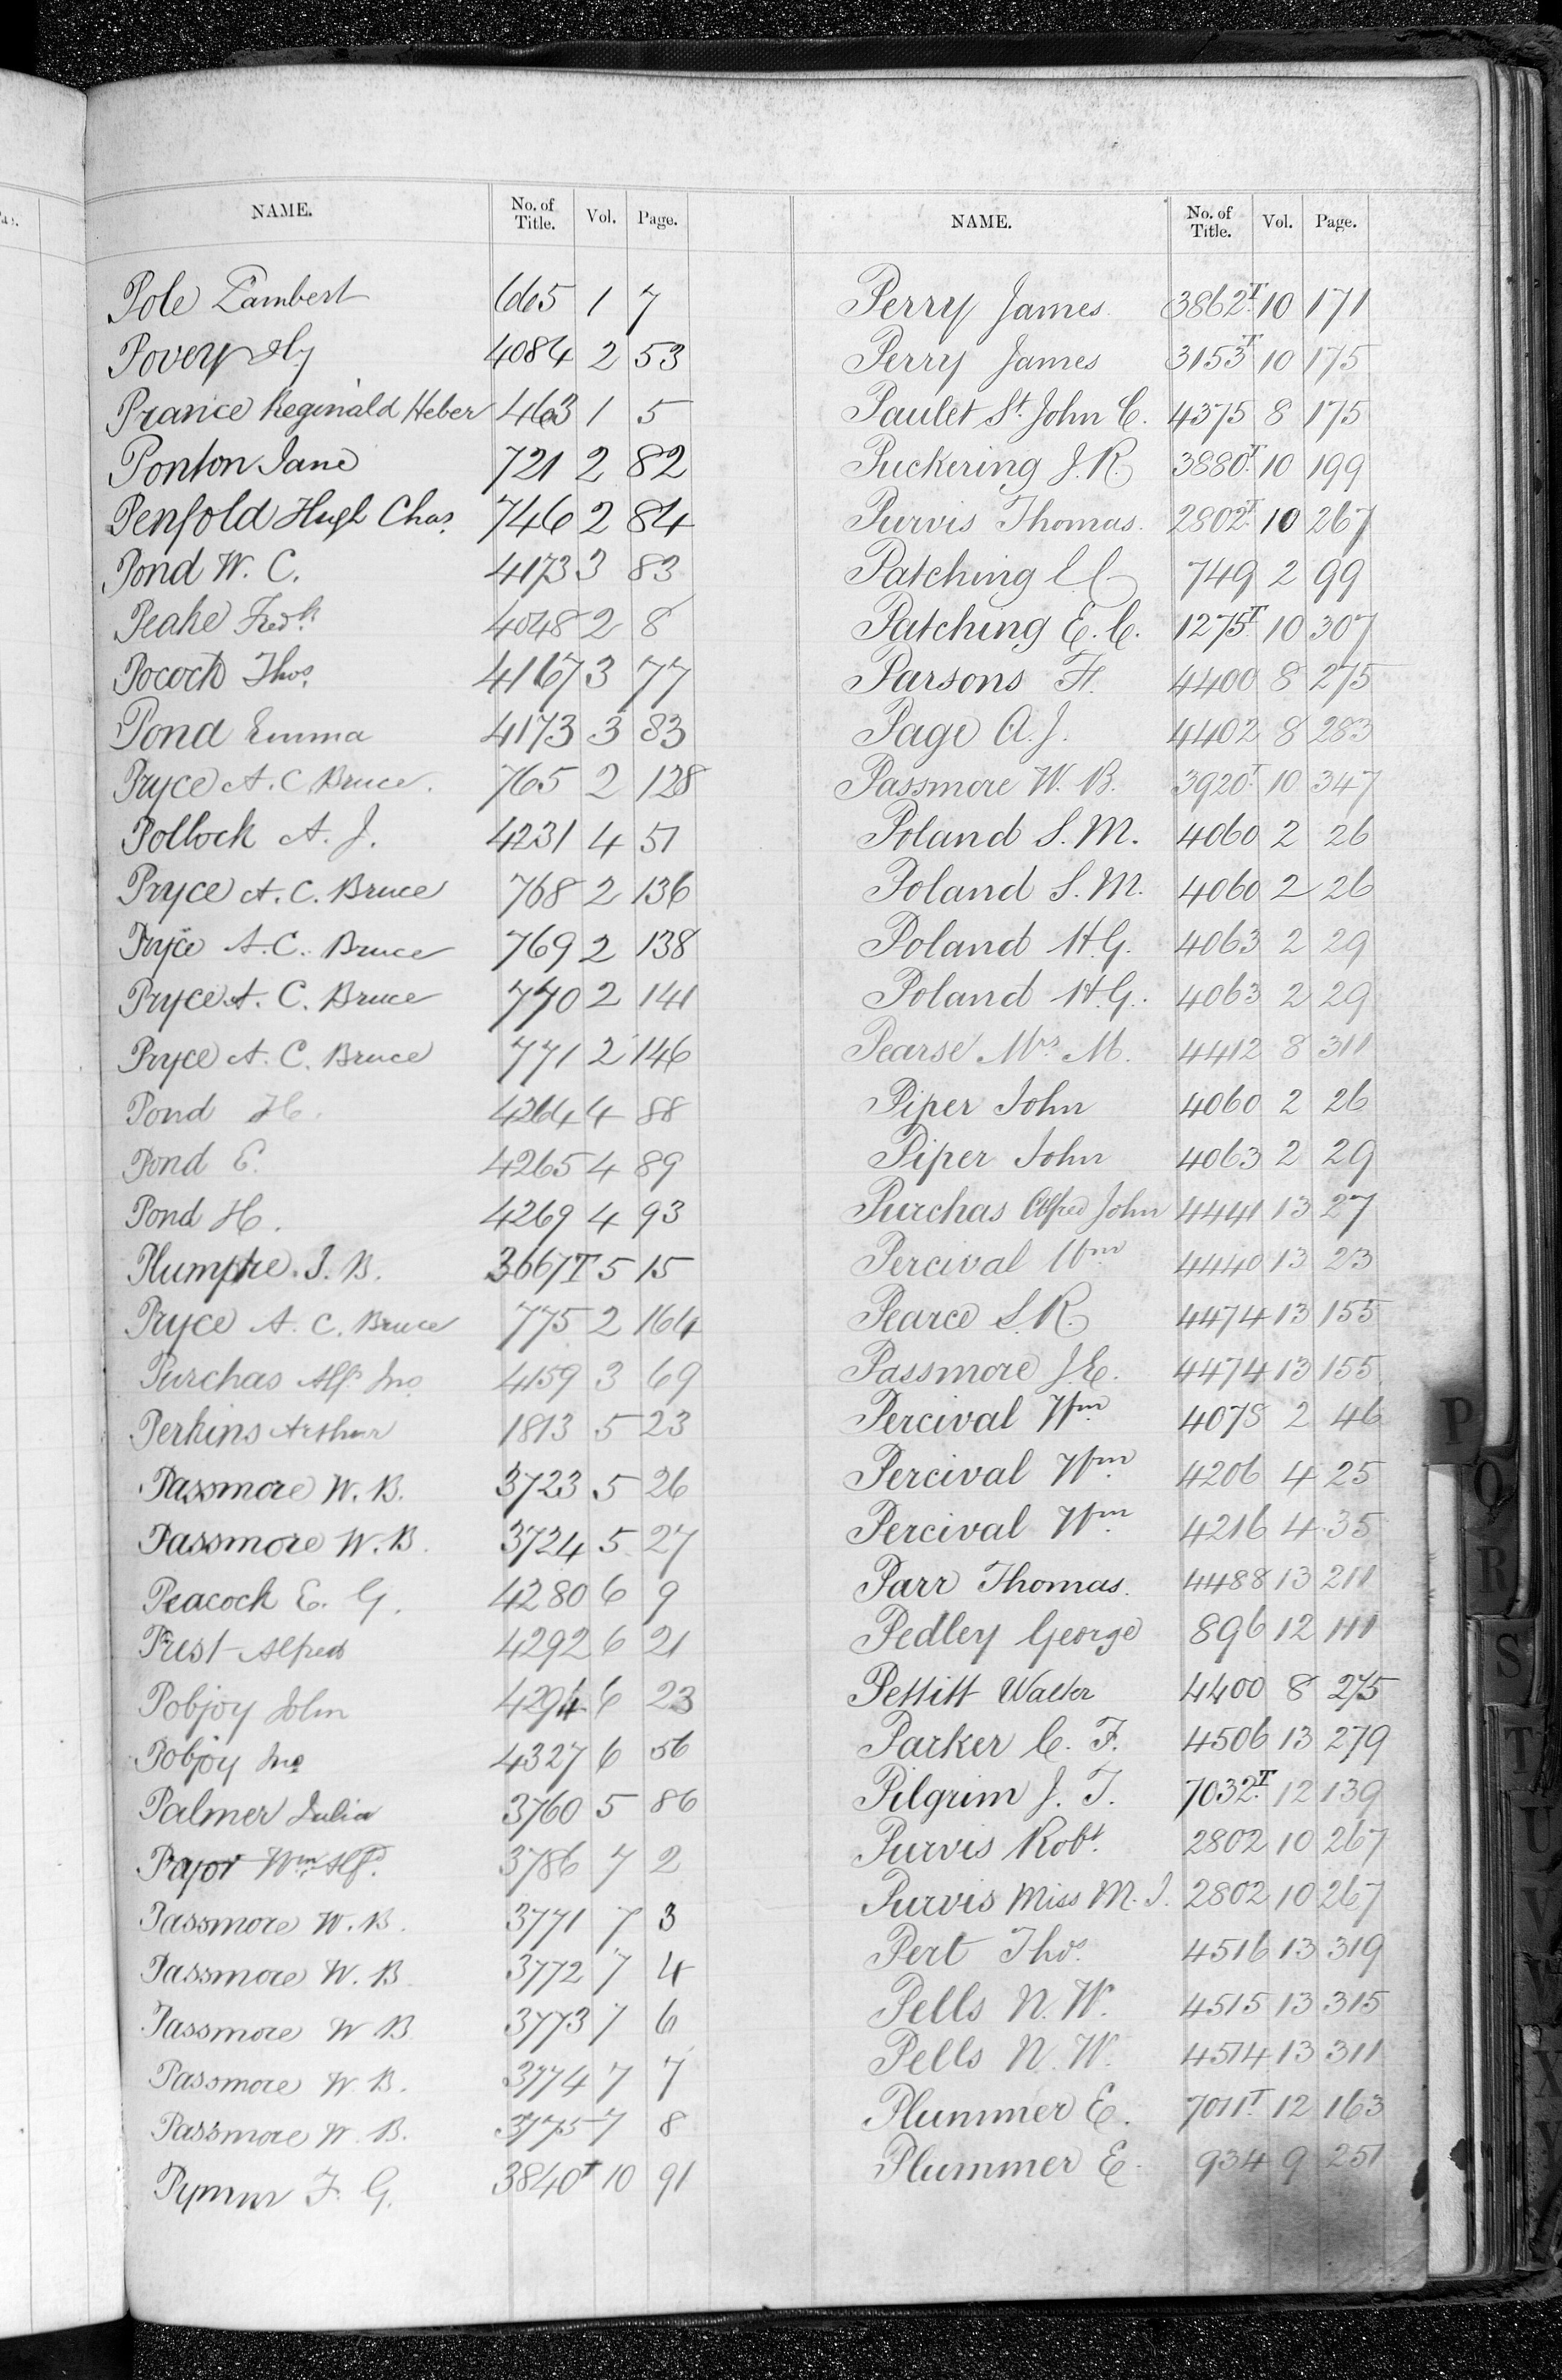 NAME. No. of Title. Vol. Page.
Pole Lambert 665 1 7
Povey Hy 4084 2 53
Prance Reginald Heber 463 1 5
Ponton Jane 721 2 82
Penfold Hugh Chas. 746 2 84
Pond W. C. 4173 3 83
Peake Fredk 4048 2 8
Pocock Thos. 4167 3 77
Pond Emma 4173 3 83
Pryce A. C Bruce. 765 2 128
Pollock A. J. 4231 4 51
Pryce A. C. Bruce 768 2 136
Pryce A. C. Bruce 769 2 138
Pryce A. C. Bruce 770 2 141
Pryce A. C. Bruce 771 2 146
Pond H. 4264 4 88
Pond E. 4265 4 89
Pond H. 4269 4 93
Plumptre. J. B. 3667T 5 15
Pryce A. C. Bruce 775 2 164
Purchas Alfd Jno. 4159 3 69
Perkins Arthur 1813 5 23
Passmore W. B. 3723 5 26
Passmore W. B. 3724 5 27
Peacock E. G. 4280 6 9
Prest Alfred 4292 6 21
Pobjoy John 4294 6 23
Pobjoy Jno 4327 6 56
Palmer Julia 3760 5 86
Pajor Wm Alfd. 3786 7 2
Passmore W. B. 3771 7 3
Passmore W. B. 3772 7 4
Passmore W B. 3773 7 6
Passmore W. B. 3774 7 7
Passmore W. B. 3775 7 8
Pymm F. G. 3840T 10 91
NAME. No. of Title. Vol. Page.
Perry James 3862T 10 171
Perry James 3153T 10 175
Paulet St. John C. 4375 8 175
Puckering J. R. 3880T 10 199
Purvis Thomas. 2802T 10 267
Patching E C 749 2 99
Patching E. C. 1275T 10 307
Parsons F. 4400 8 275
Page A. J. 4402 8 283
Passmore W. B. 3920T 10 347
Poland S. M. 4060 2 26
Poland S. M. 4060 2 26
Poland H. G. 4063 2 29
Poland H. G. 4063 2 29
Pearse Mrs M. 4412 8 311
Piper John 4060 2 26
Piper John 4063 2 29
Purchas Alfred John 4441 13 27
Percival Wm 4440 13 23
Pearce S. R. 4474 13 155
Passmore J. E. 4474 13 155
Percival Wm 4078 2 46
Percival Wm 4206 4 25
Percival Wm 4216 4 35
Parr Thomas. 4488 13 211
Pedley George 896 12 111
Pettitt Walter 4400 8 275
Parker C. F. 4506 13 279
Pilgrim J. T. 7032T 12 139
Purvis Robt. 2802 10 267
Purvis Miss M. J. 2802 10 267
Pert Thos. 4516 13 319
Pells N. W. 4515 13 315
Pells N. W. 4514 13 311
Plummer E. 7011T 12 163
Plummer E. 934 9 251
P
Q
R
S
T
U
V
W
X
Y